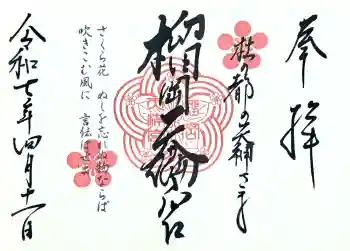 奉拝
杜の都の天神さま
榴岡天満宮
さくら花 ぬしを忘れぬ物ならば
吹きこむ風に 言伝はせよ
令和七年四月十二日